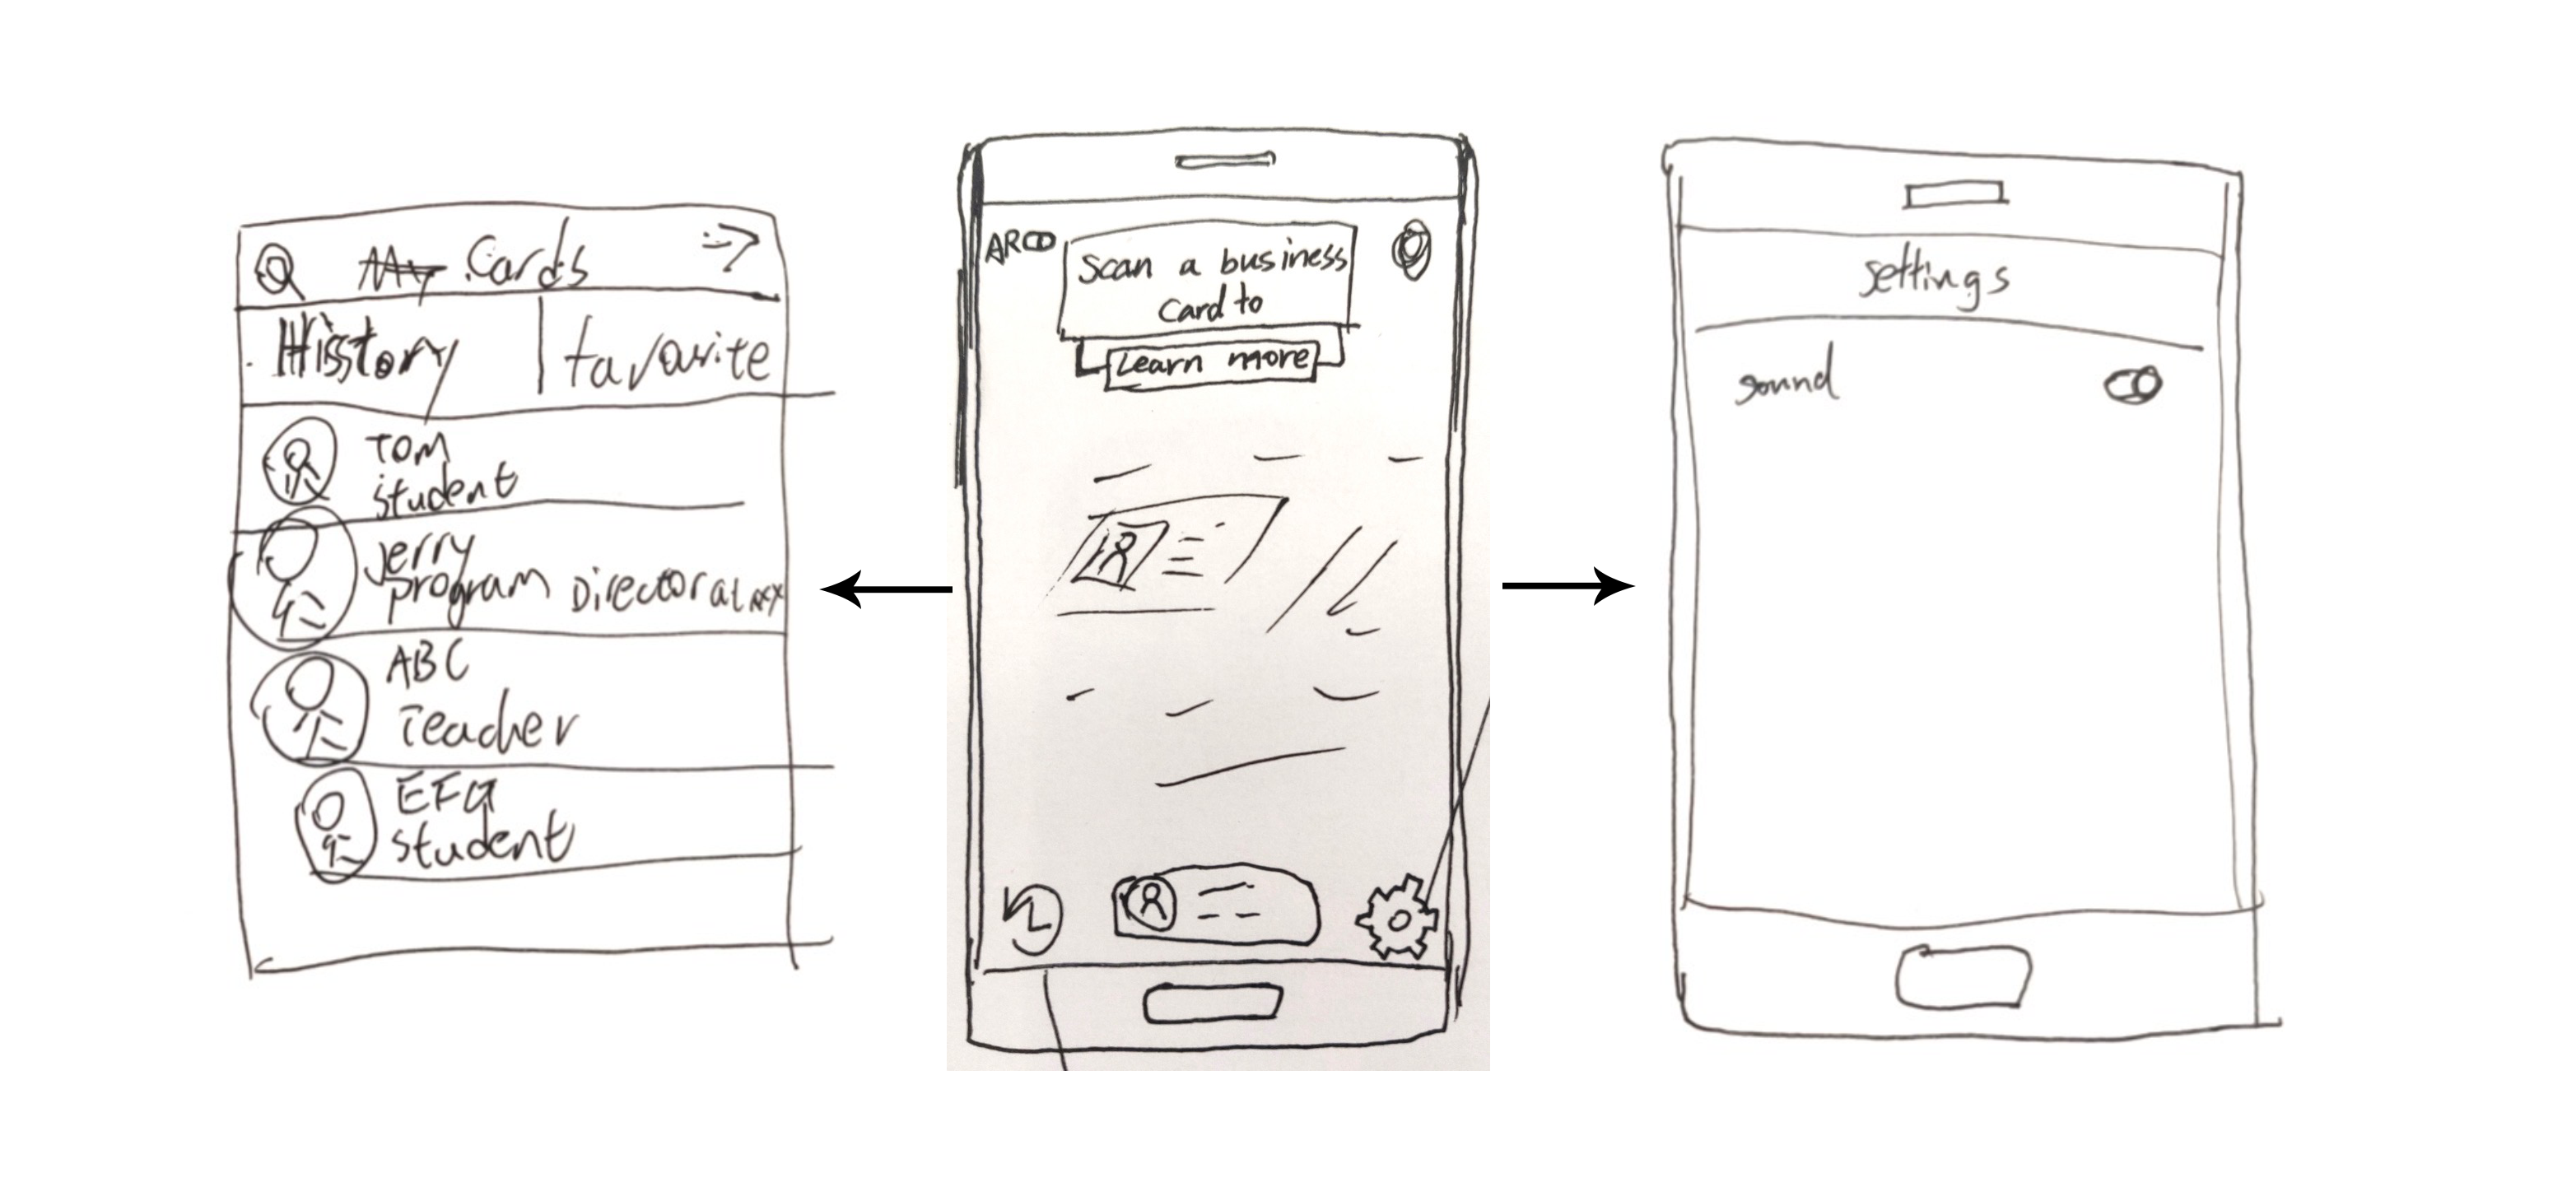 Cards
History
favourite
TOM
student
Jerry
program Director at
ABC
Teacher
EFG
student
AR
Scan a business
Card to
Learn more
settings
sound